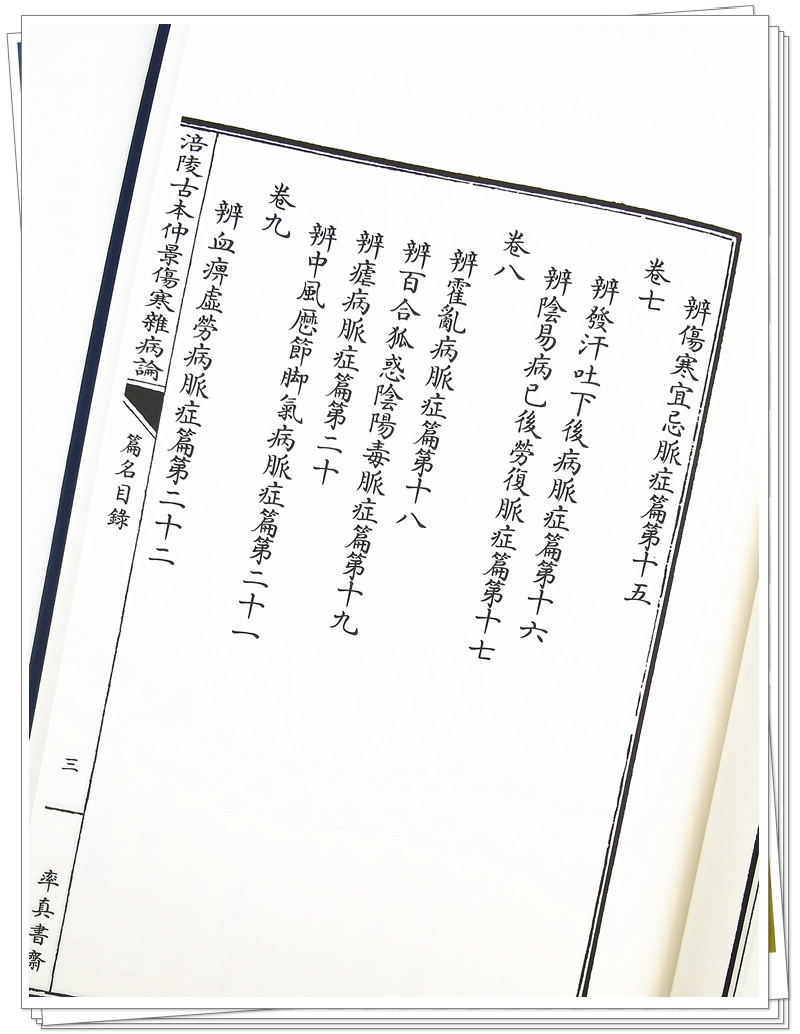 卷七
辨傷寒宜忌脈症篇第十五
辨發汗吐下後病脈症篇第十六
卷八
辨陰易病已後勞復脈症篇第十七
辨霍亂病脈症篇第十八
辨百合狐惑陰陽毒脈症篇第十九
辨瘧病脈症篇第二十
辨中風歷節脚氣病脈症篇第二十一
卷九
辨血痹虛勞病脈症篇第二十二
涪陵古本仲景傷寒雜病論
篇名目錄
三
率真書齋